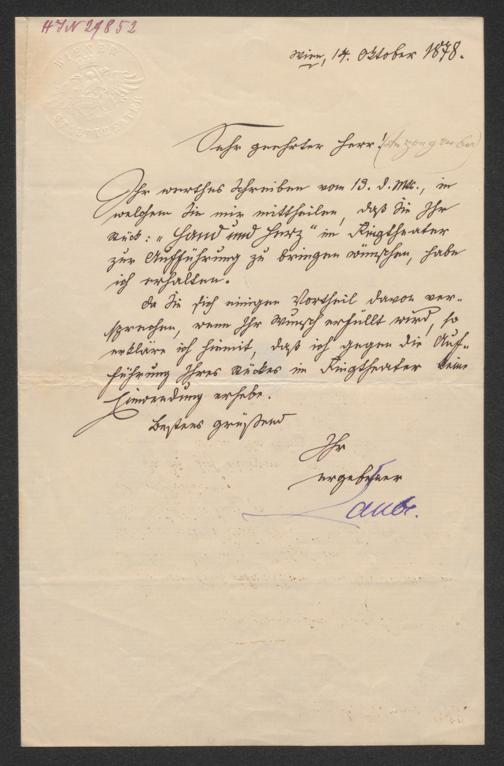 HIN 29852
WIENER
STADTTHEATER
Wien, 14. Oktober 1878.
Sehr geehrter Herr! (Anzengruber)
Ihr werthes Schreiben vom 13. d. Mts., in
welchem Sie mir mittheilen, daß Sie Ihr
Stück: „Hand und Herz" im Ringtheater
zur Aufführung zu bringen wünschen, habe
ich erhalten.
Da Sie sich einigen Vortheil davon ver-
sprechen, wenn Ihr Wunsch erfüllt wird, so
erkläre ich hiemit, daß ich gegen die Auf-
führung Ihres Stückes im Ringtheater keine
Einwendung erhebe.
Bestens grüßend
Ihr
ergebener
Laube.